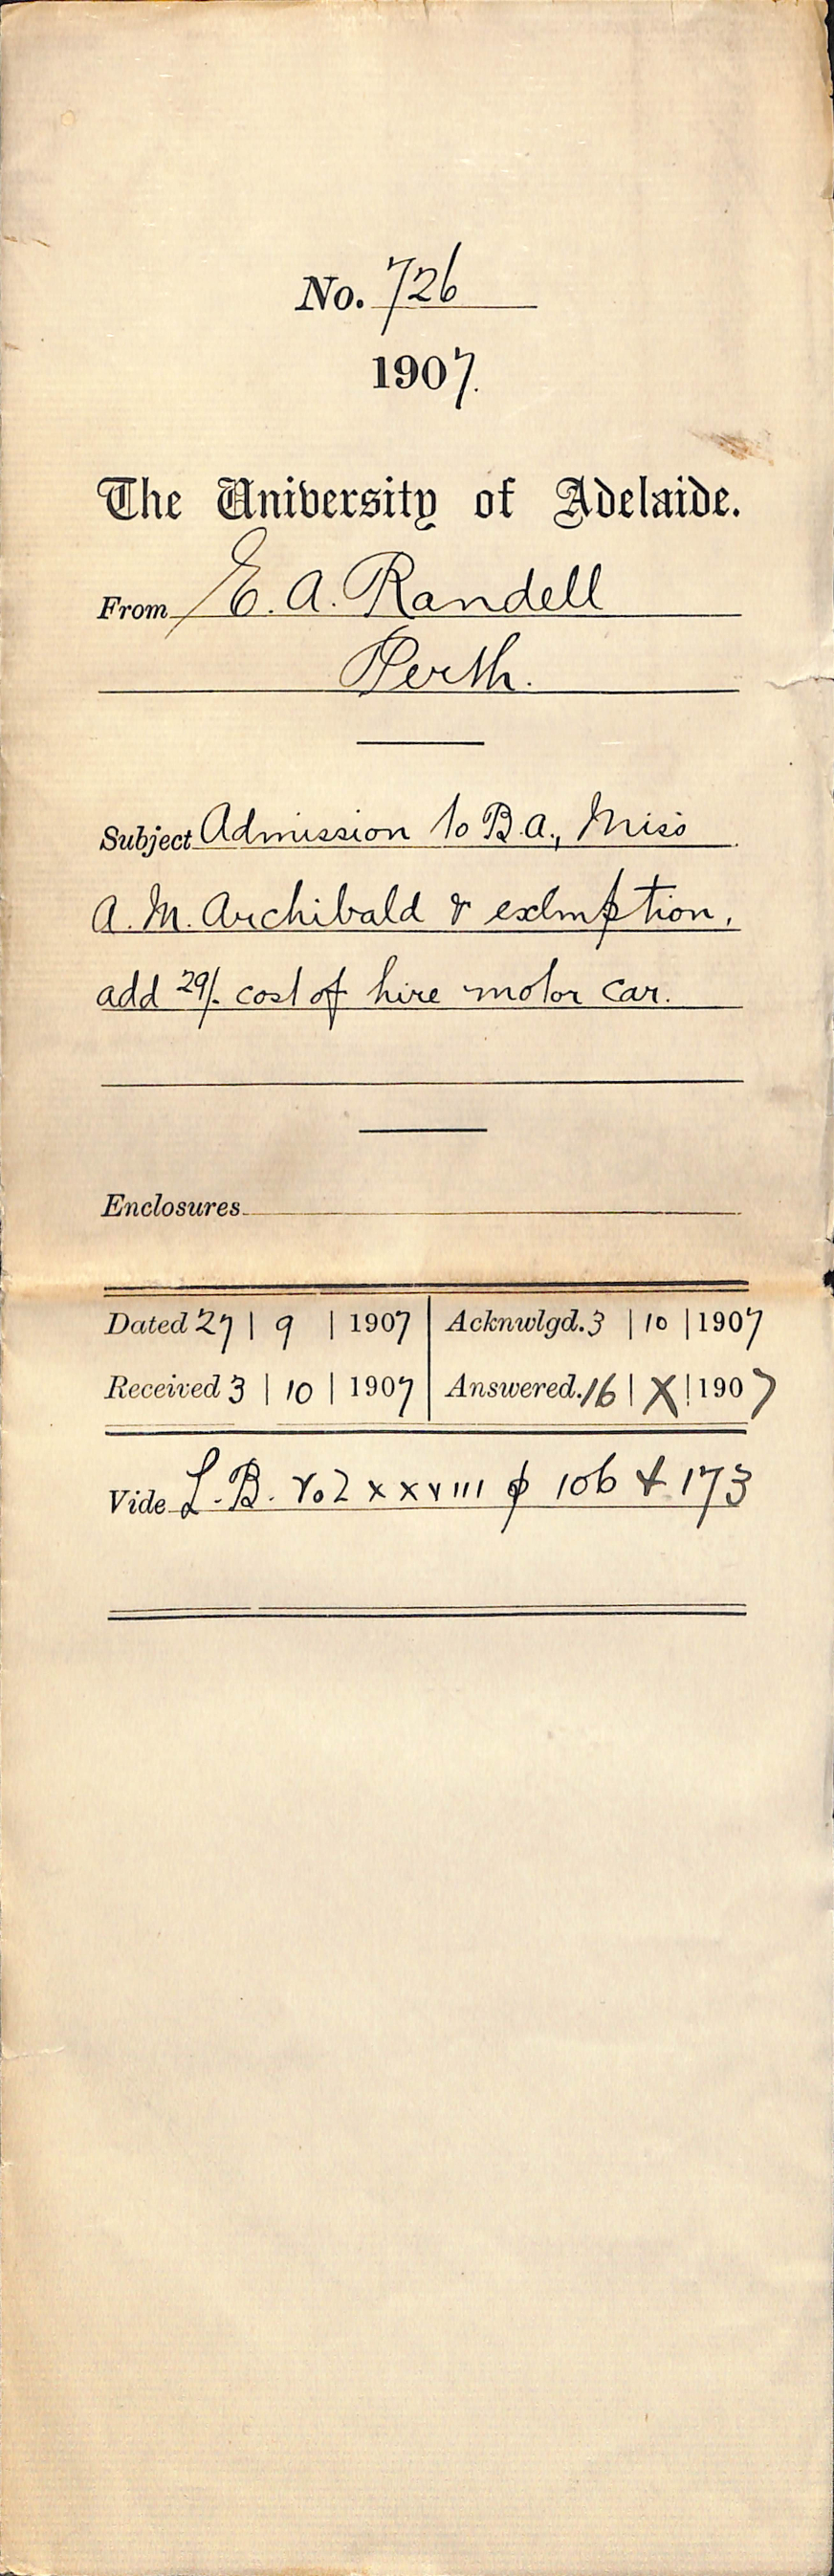 No. 726
1907.
The University of Adelaide.
From E. A. Randell
Perth.
Subject Admission to B.A., Miss
A. M. Archibald & exemption,
add 29/- cost of hire motor car.
Enclosures
Dated 27 | 9 | 1907 Acknwlgd. 3 | 10 | 1907
Received 3 | 10 | 1907 Answered. 16 | X | 1907
Vide L.B. Vol xxviii p 106 & 173